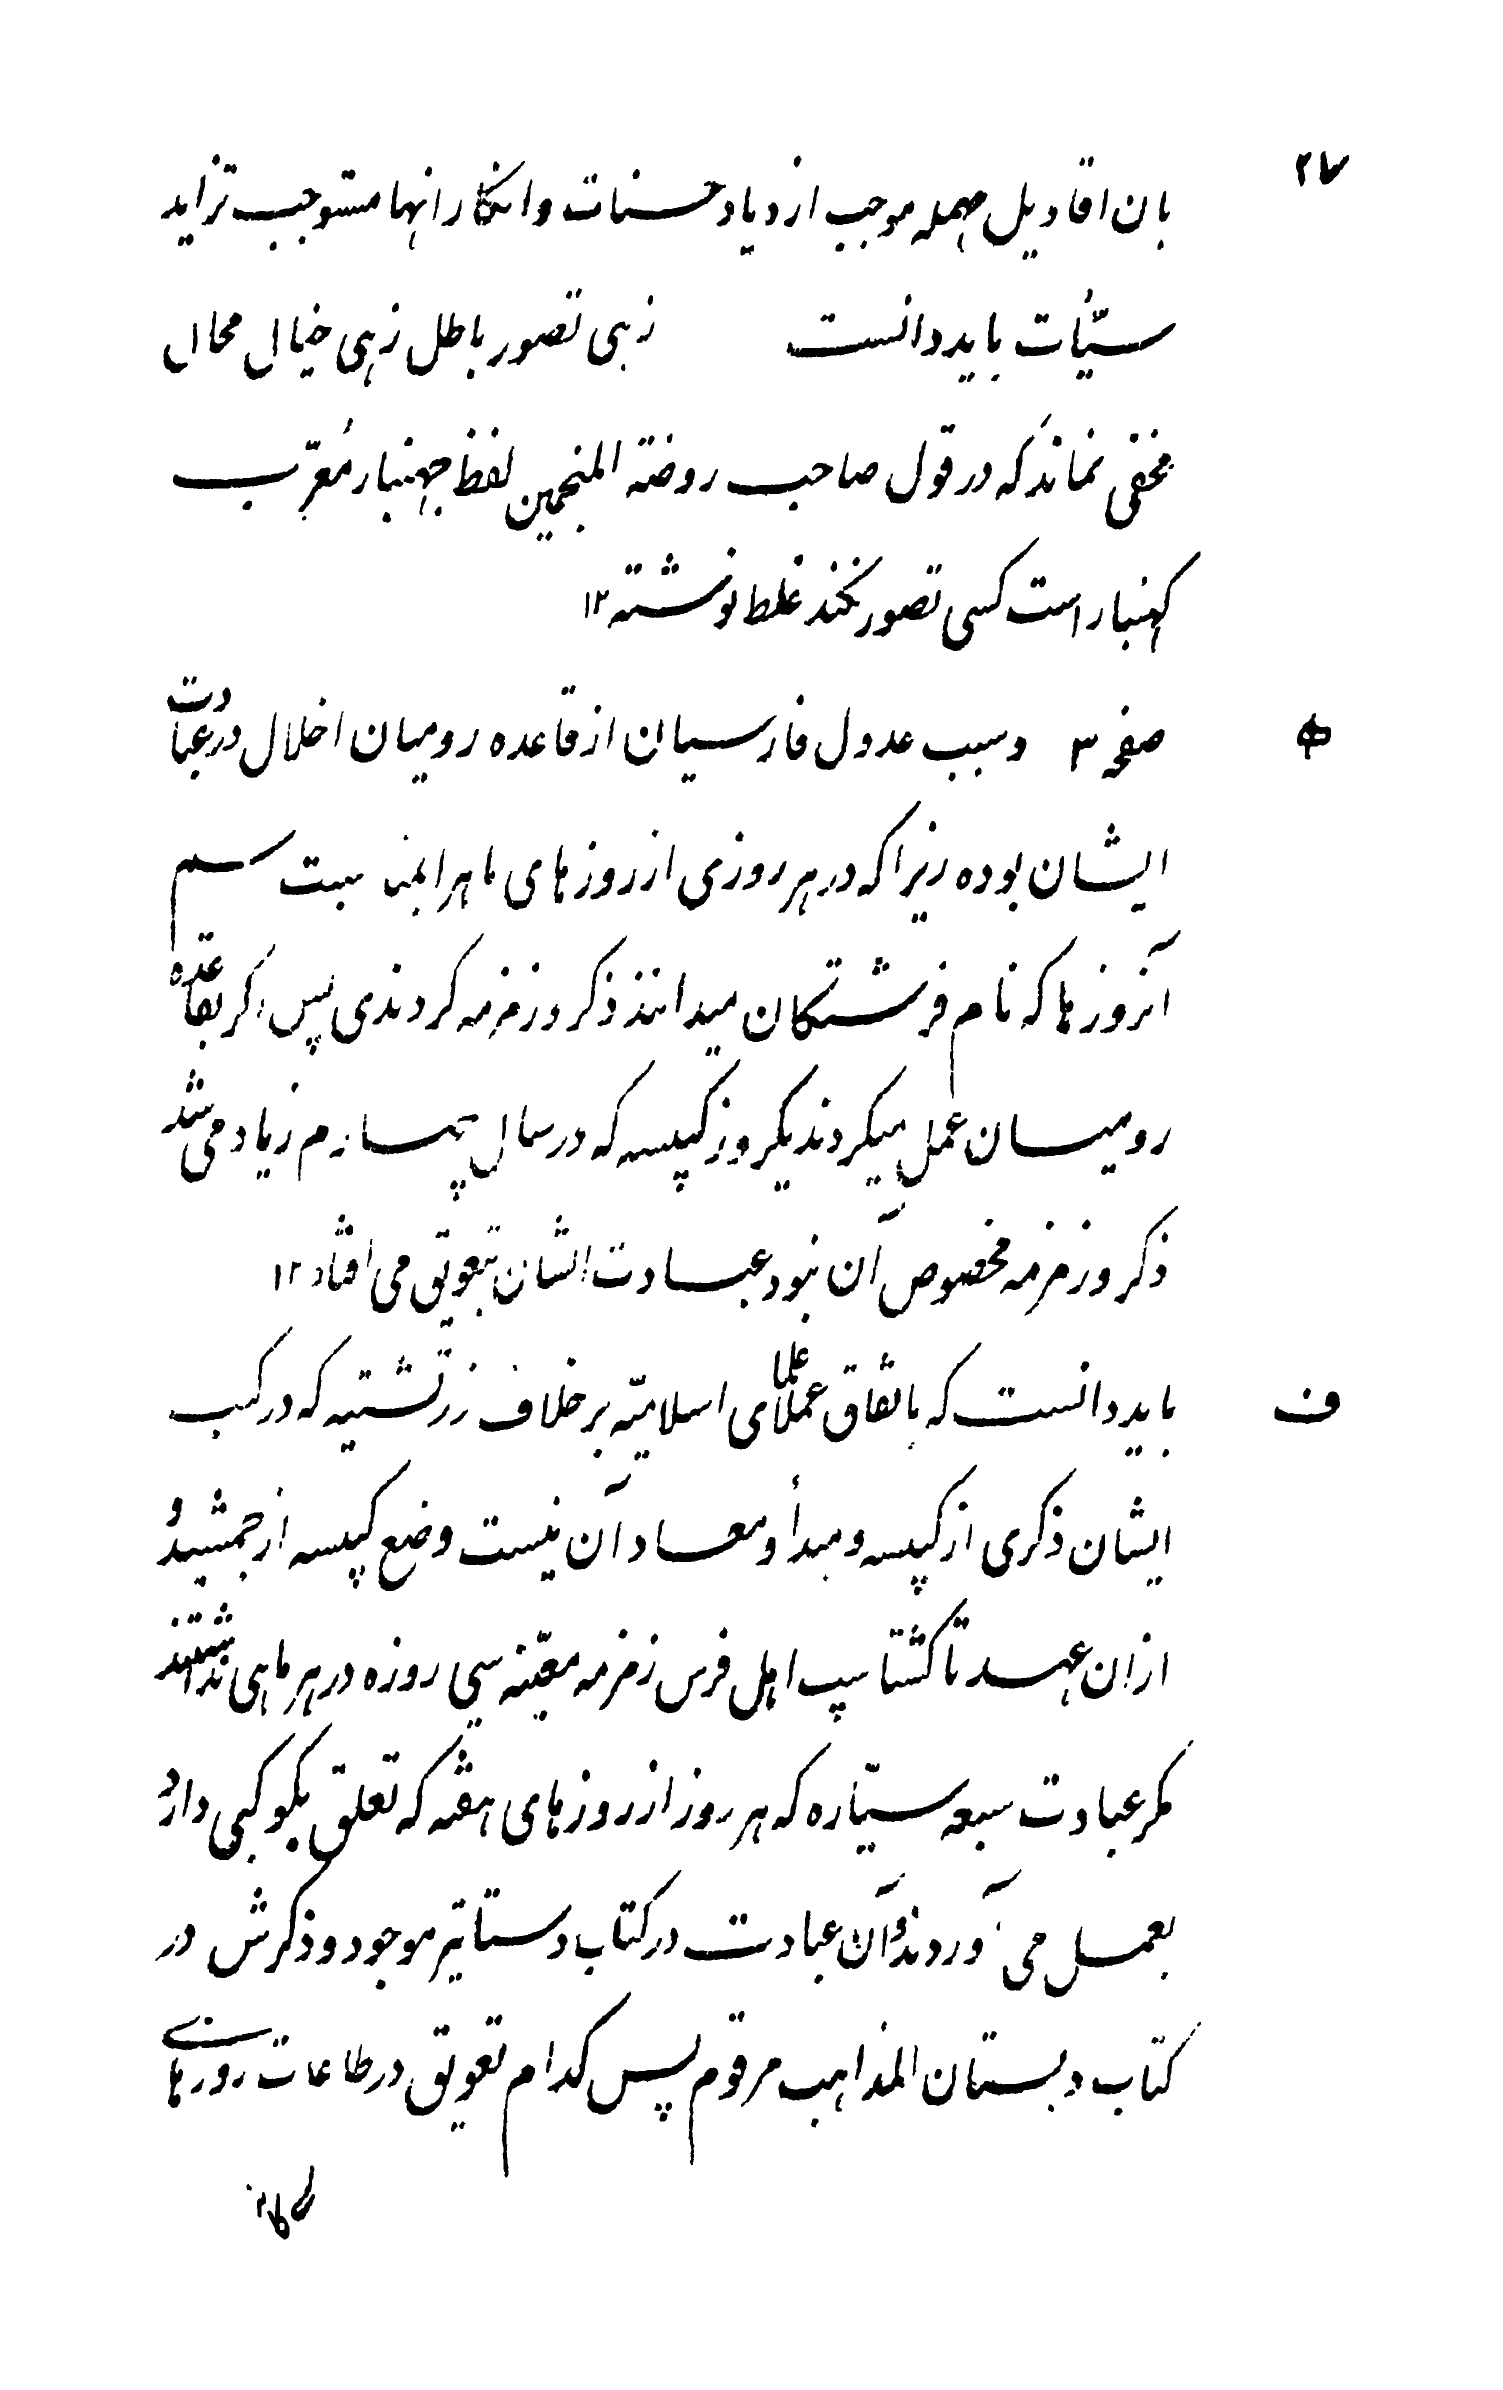 ۲۷
بان اقاویل مهمله موجب ازدیاد حسنات و انکار انها مستوجب تزاید
سیّئات باید دانست زهی تصور باطل زهی خیال محال
مخفی نماند که در قول صاحب روضته المنجمین لفظ جهنبار مُعرّب
کهنبار است کسی تصور نکند غلط نوشته ۱۲
صفحه ۳ و سبب عدول فارسیان از قاعده رومیان اخلال در عبادت
ایشان بوده زیرا که در هر روزی از روزهای ماهر
آنروزها که نام فرشتکان میدانند ذکر و زمزمه کردندی پس اکر بقاعده
رومیان عمل میکردند یکروز کپیسه که در سال چهارم زیاد می شد
ذکر و زمزمه مخصوص آن نبود عبادت ایشان بتعویق می افتاد ۱۲
ف باید دانست که باتفاق علمای اسلامیّه برخلاف زرتشتیه که در کتب
ایشان ذکری از کپیسه و مبدأ و معاد آن نیست وضع کپیسه از جمشید و
ازان عهد تا کشتاسپ اهل فرس زمزمه معیّنه سی روزه در هر ماهی نداشتند
مکر عبادت سبعه سیّاره که هر روز از روزهای هفته که تعلق بکوکبی دارد
بعمل می آوردند و آن عبادت در کتاب دساتیر موجود و ذکرش در
کتاب دبستان المذاهب مرقوم پس کدام تعویق در طاعات روزهای